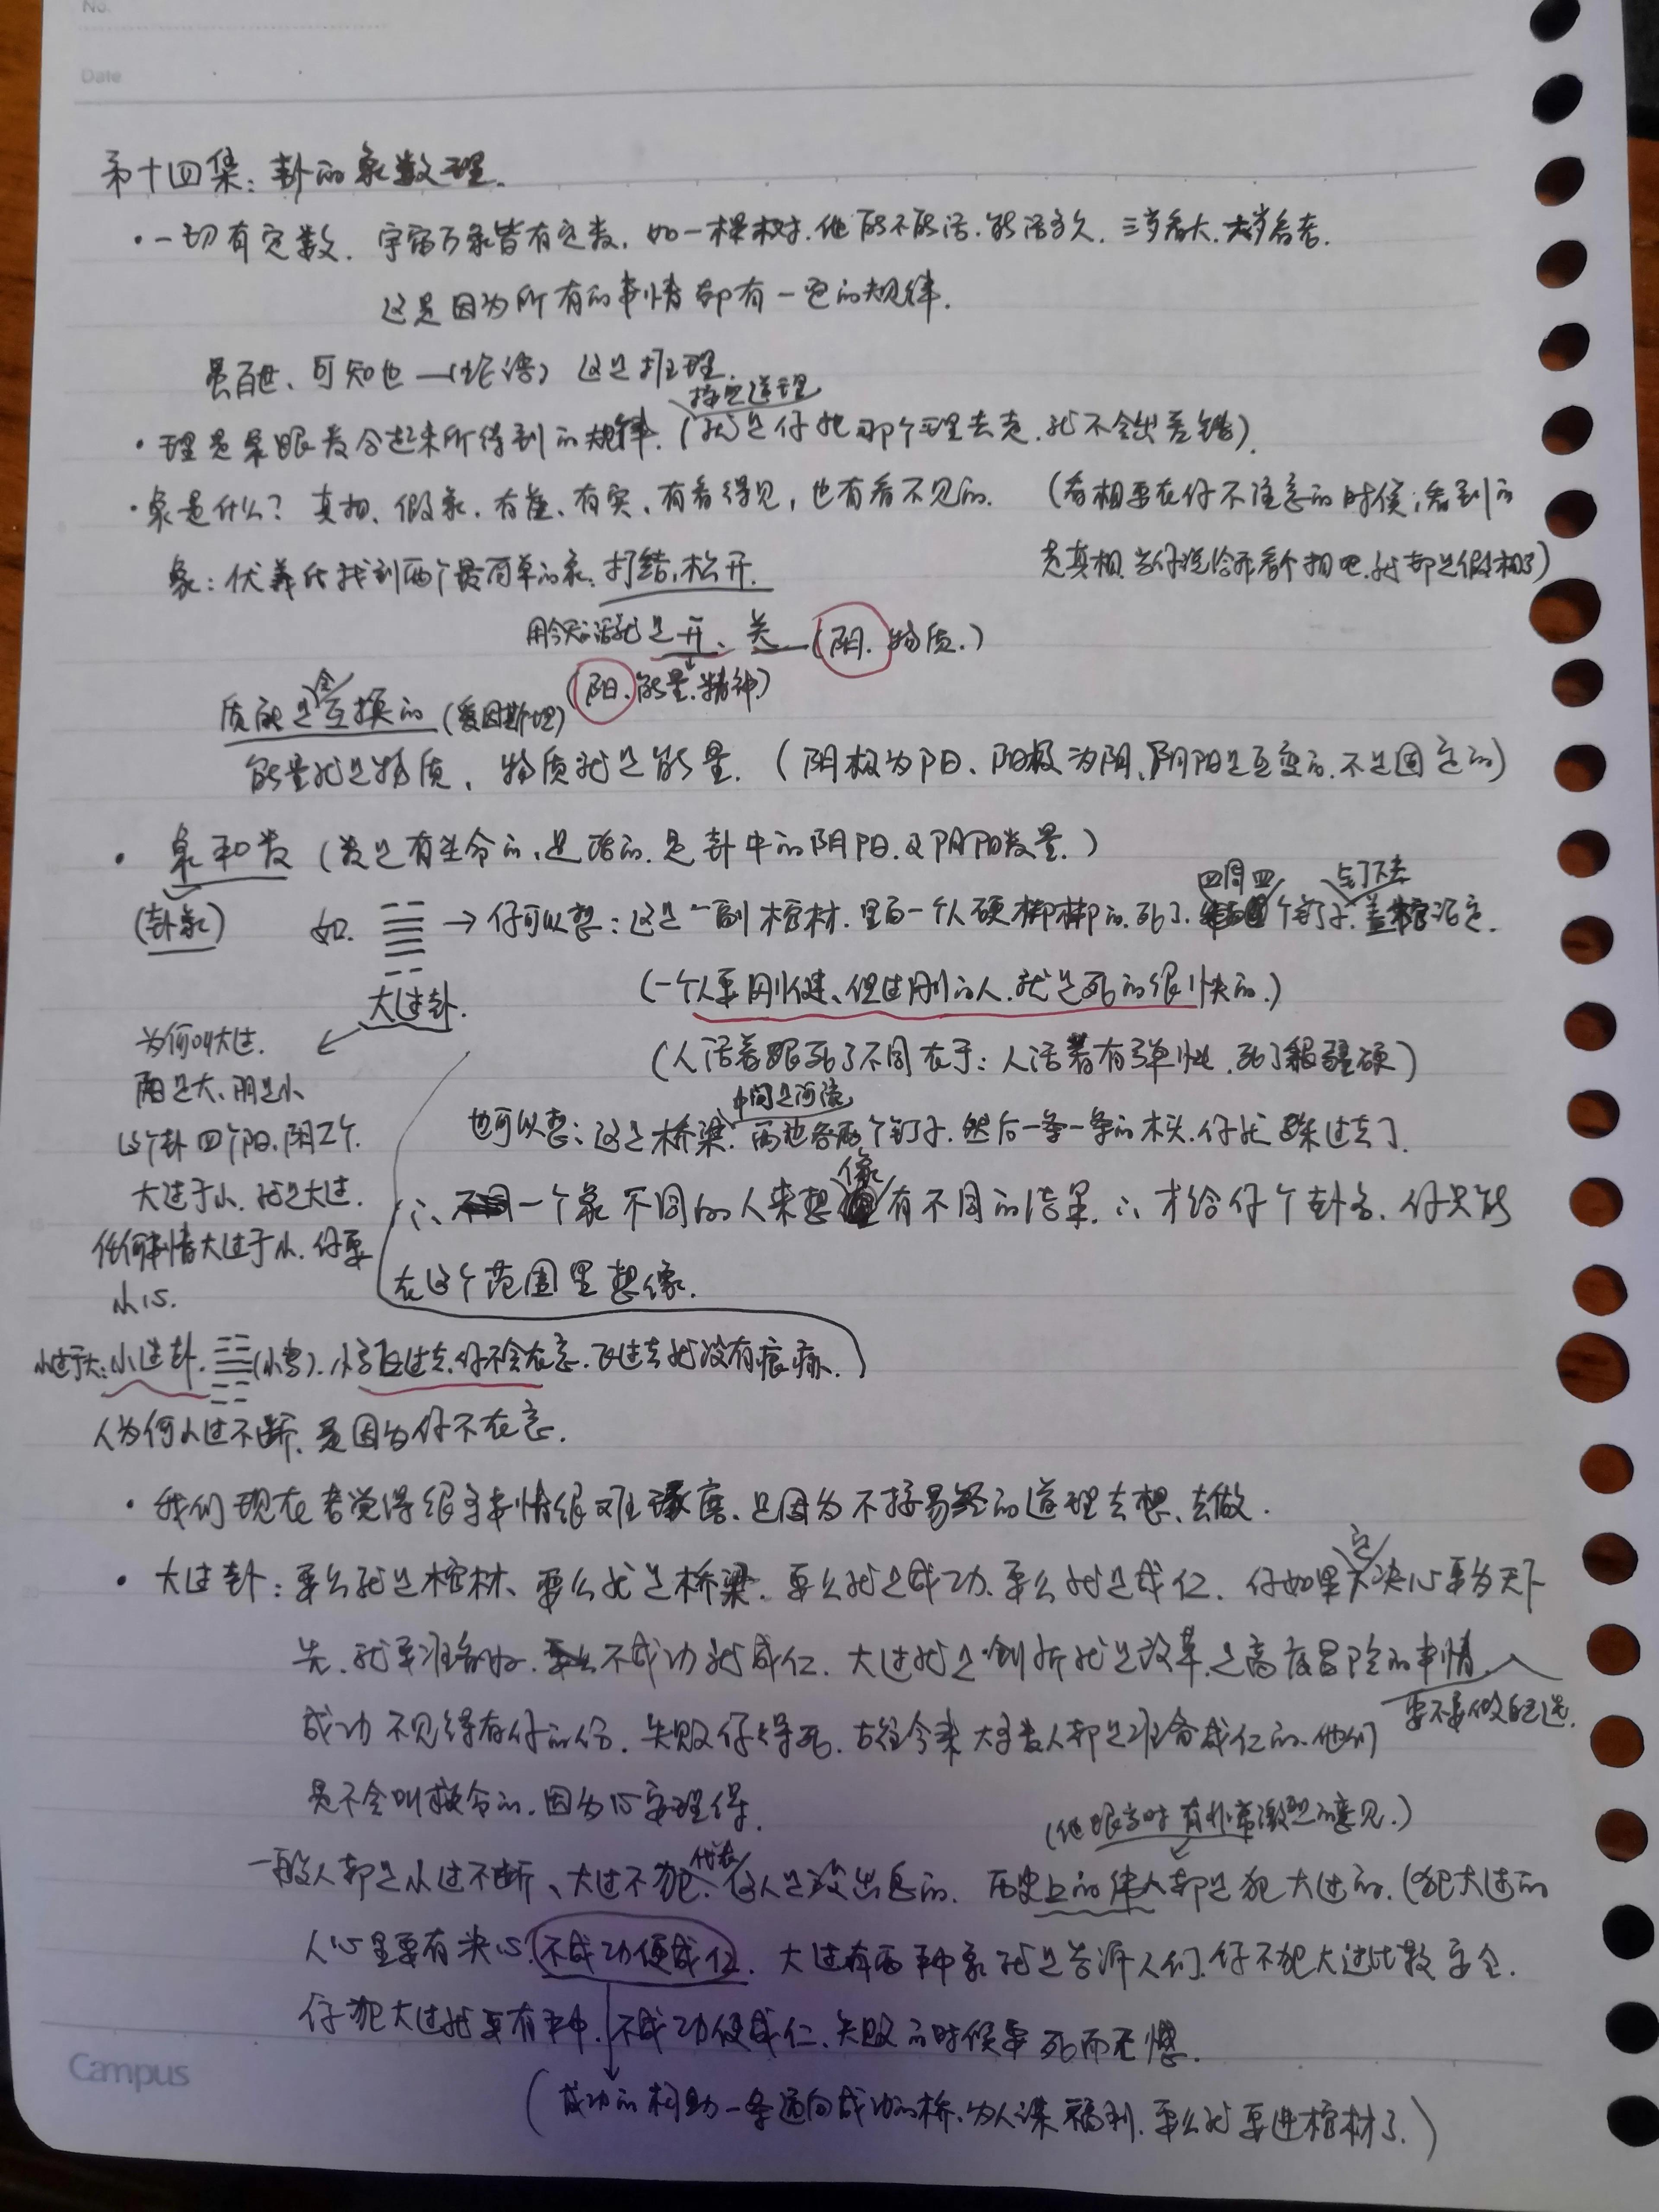 No.
Date
第十四集：卦的象数理.
·一切有定数. 宇宙万象皆有定数. 如一棵树. 他能不能活. 能活多久. 三岁看大. 六岁看老.
这是因为所有的事情都有一定的规律.
虽百世、可知也—《论语》 这是推理.
按照道理
·理是象跟数合起来所得到的规律. (就是你把那个理去走. 就不会出差错).
·象是什么? 真相、假象. 有虚、有实、有看得见, 也有看不见的. (看相要在你不注意的时候; 看到的
象: 伏羲氏找到两个最简单的象: 打结, 松开. 是真相. 当你说给我看个相吧. 就都是假相了)
用今天的话就是开、关—(阴. 物质.)
(阳. 能量. 精神)
质能是会互换的 (爱因斯坦)
能量就是物质, 物质就是能量. (阴极为阳、阳极为阴, 阴阳是互变的. 不是固定的)
· 象和数 (数是有生命的、是活的. 是卦中的阴阳. 及阴阳数量.)
四周四 动不了
(卦象) 如. ䷛ → 你可以想: 这是一副棺材. 里面一个人硬梆梆的. 死了. 个钉子. 盖棺论定.
大过卦. (一个人要刚健、但过刚的人. 就是死的很快的.)
为何叫大过. (人活着跟死了不同在于: 人活着有弹性. 死了很僵硬)
阳是大、阴是小 中间是河流
这个卦四个阳. 阴2个. 也可以想: 这是桥梁. 两边各两个钉子. 然后一条一条的木头. 你就踩过去了.
大过于小. 就是大过. ∴ 一个象不同的人来想像有不同的结果. ∴ 才给你个卦名. 你只能
任何事情大过于小. 你要 在这个范围里想像.
小心.
小过于大: 小过卦. ䷽ (小鸟). 小鸟飞过去. 你不会在意. 飞过去就没有痕迹.)
人为何小过不断. 是因为你不在意.
· 我们现在者觉得很多事情很难琢磨. 是因为不按易经的道理去想、去做.
· 大过卦: 要么就是棺材、要么就是桥梁. 要么就是成功. 要么就是成仁. 你如果下定决心要为天下
先. 就要准备好. 不成功就成仁. 大过就是创新就是改革. 是高度冒险的事情
要不要做自己选.
成功不见得有你的份. 失败你得死. 古往今来大多数人都是准备成仁的. 他们
是不会叫救命的. 因为心安理得.
(他跟当时有非常激烈的意见.)
一般人都是小过不断、大过不犯. 代表这人是没出息的. 历史上的伟人都是犯大过的. (犯大过的
人心里要有决心. 不成功便成仁. 大过有两种象就是告诉人们. 你不犯大过比较安全.
你犯大过就要有种. 不成功便成仁. 失败的时候要死而无憾.
(成功的相助一条通向成功的桥. 为人谋福利. 要么就要进棺材了.)
Campus